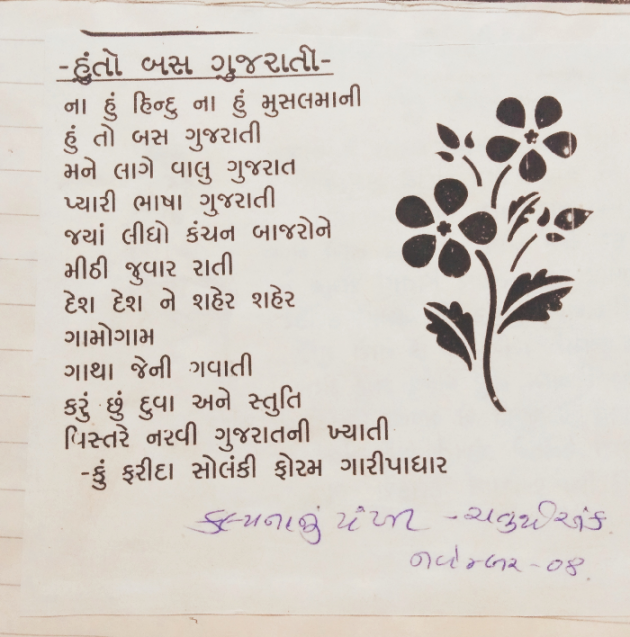 -હુંતો બસ ગુજરાતી-
ના હું હિન્દુ ના હું મુસલમાની
હું તો બસ ગુજરાતી
મને લાગે વાલુ ગુજરાત
પ્યારી ભાષા ગુજરાતી
જયાં લીધો કંચન બાજરોને
મીઠી જુવાર રાતી
દેશ દેશ ને શહેર શહેર
ગામોગામ
ગાથા જેની ગવાતી
કરું છું દુવા અને સ્તુતિ
વિસ્તરે નરવી ગુજરાતની ખ્યાતી
-કું ફરીદા સોલંકી ફોરમ ગારીપાધાર
કલ્પનાનું પંખી -ચતુર્થઅંક.
નવેમ્બર-૦૪.